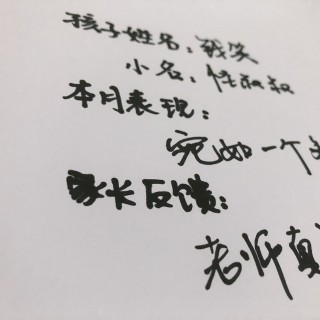 孩子姓名：钱笑
小名：佟叔叔
本月表现：
宛如一个
家长反馈：
老师真